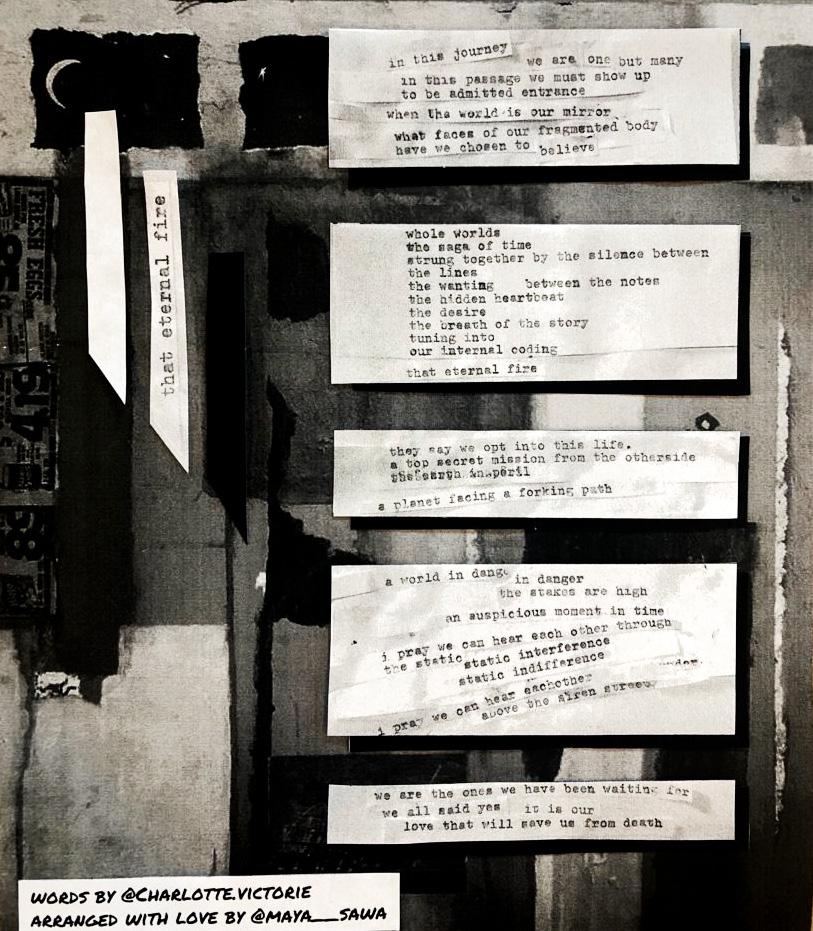 in this journey we are one but many
in this passage we must show up
to be admitted entrance
when the world is our mirror
what faces of our fragmented body
have we chosen to believe
whole worlds
the saga of time
strung together by the silence between
the lines
the wanting between the notes
the hidden heartbeat
the desire
the breath of the story
tuning into
our internal coding
that eternal fire
that eternal fire
FRESH EGGS
419
they say we opt into this life.
a top secret mission from the otherside
the earth in peril
a planet facing a forking path
a world in dange in danger
the stakes are high
an auspicious moment in time
i pray we can hear each other through
the static static interference
static indifference
i pray we can hear eachother
above the siren street
we are the ones we have been waiting for
we all said yes it is our
love that will save us from death
WORDS BY @CHARLOTTE.VICTORIE
ARRANGED WITH LOVE BY @MAYA__SAWA